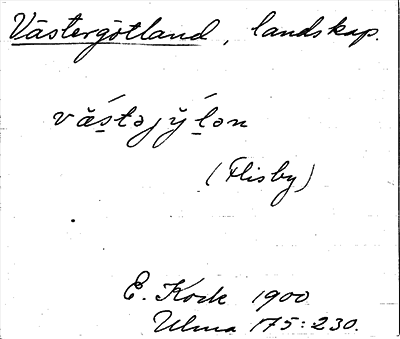 Västergötland, landskap.
vä̆ś̠təjy̆ĺ̠ən
(Flisby)
E. Kock 1900
Ulma 175:230.